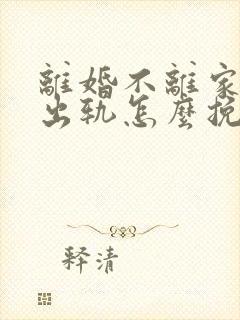 離婚不離家
出軌怎麼挽
释清